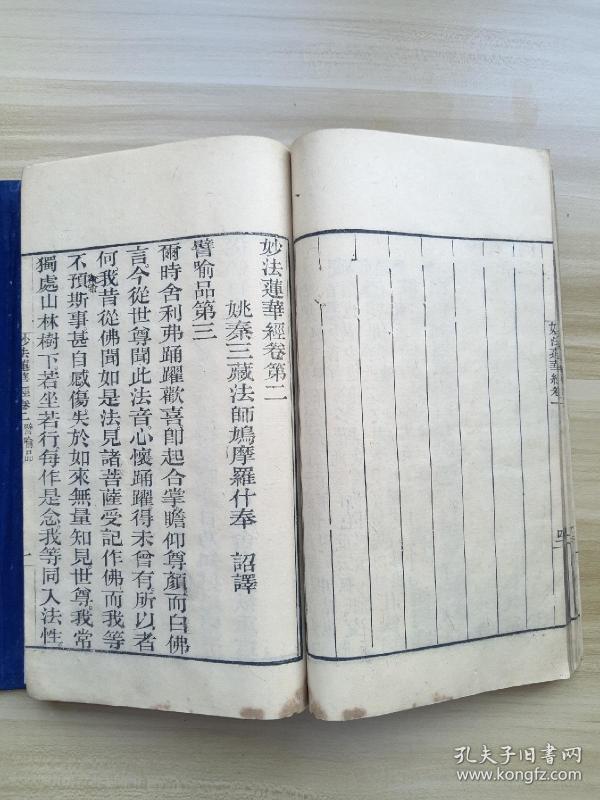 妙法蓮華經卷一
妙法蓮華經卷第二
姚秦三藏法師鳩摩羅什奉 詔譯
譬喻品第三
爾時舍利弗踊躍歡喜卽起合掌瞻仰尊顏而白佛
言今從世尊聞此法音心懷踊躍得未曾有所以者
何我昔從佛聞如是法見諸菩薩受記作佛而我等
不預斯事甚自感傷失於如來無量知見世尊我常
獨處山林樹下若坐若行每作是念我等同入法性
妙法蓮華經卷二 譬喻品 一
孔夫子旧书网
www.kongfz.com